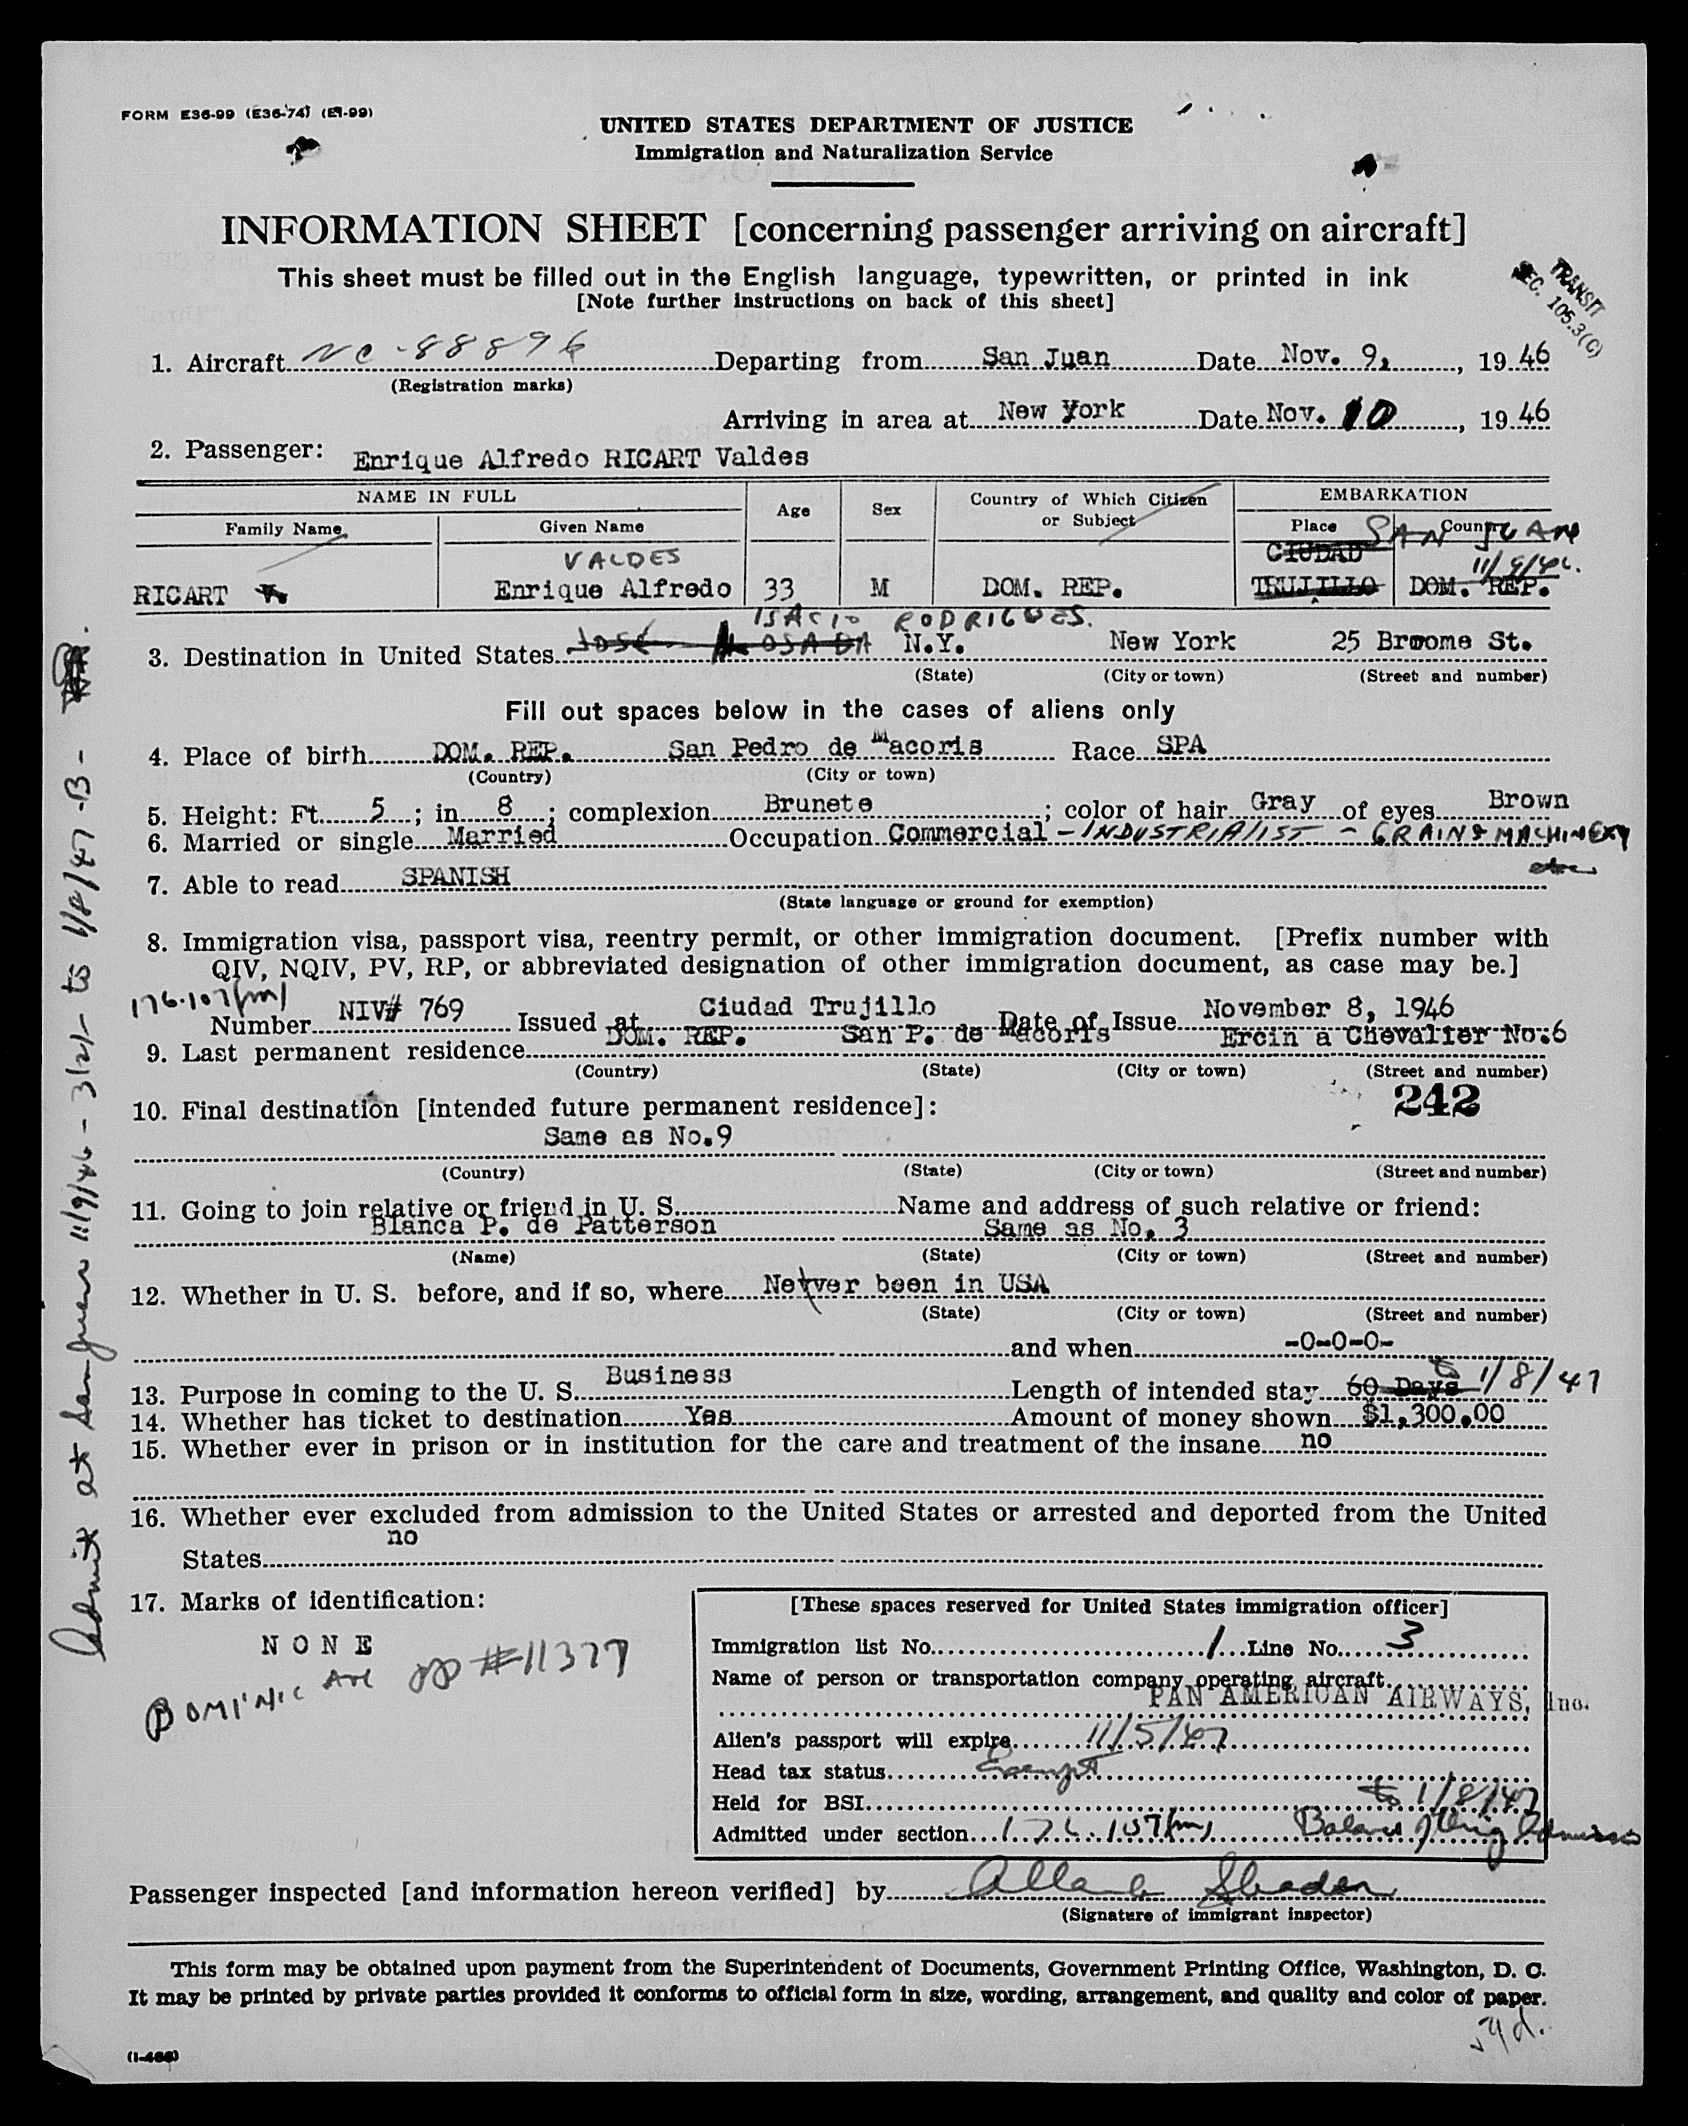 FORM E36-99 (E36-74) (E1-99)
UNITED STATES DEPARTMENT OF JUSTICE
Immigration and Naturalization Service
INFORMATION SHEET [concerning passenger arriving on aircraft]
This sheet must be filled out in the English language, typewritten, or printed in ink
[Note further instructions on back of this sheet]
TRANSIT
SEC. 105.3(C)
1. Aircraft NC-88896 Departing from San Juan Date Nov. 9, , 19 46
(Registration marks)
Arriving in area at New York Date Nov. 10 , 19 46
2. Passenger: Enrique Alfredo RICART Valdes
NAME IN FULL Age Sex Country of Which Citizen or Subject EMBARKATION
Family Name Given Name Place Country
SAN JUAN
VALDES CIUDAD 11/9/46.
RICART V. Enrique Alfredo 33 M DOM. REP. TRUJILLO DOM. REP.
ISACIO RODRIGUES.
3. Destination in United States JOSE LOSADA N.Y. New York 25 Broome St.
(State) (City or town) (Street and number)
Fill out spaces below in the cases of aliens only
4. Place of birth DOM. REP. San Pedro de Macoris Race SPA
(Country) (City or town)
5. Height: Ft. 5 ; in. 8 ; complexion Brunete ; color of hair Gray of eyes Brown
6. Married or single Married Occupation Commercial - INDUSTRIALIST - GRAIN & MACHINERY
etc
7. Able to read SPANISH
(State language or ground for exemption)
8. Immigration visa, passport visa, reentry permit, or other immigration document. [Prefix number with
QIV, NQIV, PV, RP, or abbreviated designation of other immigration document, as case may be.]
176.107(m)
Number NIV# 769 Issued at Ciudad Trujillo Date of Issue November 8, 1946
9. Last permanent residence DOM. REP. San P. de Macoris Ercin a Chevalier No.6
(Country) (State) (City or town) (Street and number)
242
10. Final destination [intended future permanent residence]:
Same as No.9
(Country) (State) (City or town) (Street and number)
11. Going to join relative or friend in U. S. Name and address of such relative or friend:
Blanca P. de Patterson Same as No. 3
(Name) (State) (City or town) (Street and number)
12. Whether in U. S. before, and if so, where Netver been in USA
(State) (City or town) (Street and number)
and when -0-0-0-
13. Purpose in coming to the U. S. Business Length of intended stay 60 Days to 1/8/47
14. Whether has ticket to destination Yes Amount of money shown $1,300.00
15. Whether ever in prison or in institution for the care and treatment of the insane no
16. Whether ever excluded from admission to the United States or arrested and deported from the United
States no
17. Marks of identification:
NONE
DOMINIC
PP #11377
[These spaces reserved for United States immigration officer]
Immigration list No. 1 Line No. 3
Name of person or transportation company operating aircraft
PAN AMERICAN AIRWAYS, Inc.
Alien's passport will expire 11/5/47
Head tax status Exempt
Held for BSI to 1/8/47
Admitted under section 176.107(m) Balance
Passenger inspected [and information hereon verified] by Allan Shader
(Signature of immigrant inspector)
This form may be obtained upon payment from the Superintendent of Documents, Government Printing Office, Washington, D. C.
It may be printed by private parties provided it conforms to official form in size, wording, arrangement, and quality and color of paper.
(I-466)
Admit at San Juan 11/9/46 - 3(2)- to 1/8/47 -B-